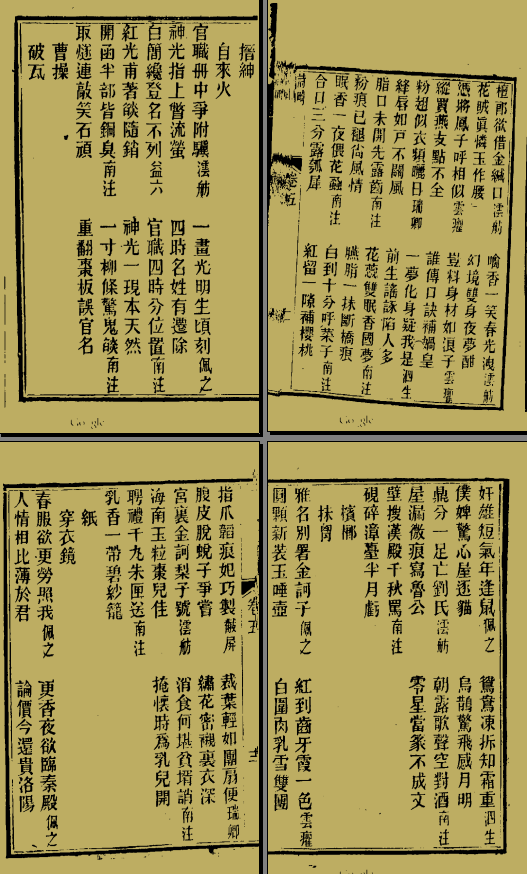 搢紳
自來火
官職册中爭附驥 澐舫 一畫光明生頃刻 佩之
神光指上瞥流螢 四時名姓有遷除
白簡纔登名不列 益六 官職四時分位置 南注
紅光甫著燄隨銷 神光一現本天然
開函半部皆銅臭 南注 一寸柳條驚鬼燄 南注
取燧連敲笑石頑 重翻棗板誤官名
曹操
破瓦
Google
檀郎欲借金緘口 澐舫 噙香一笑春光洩 澐舫
花賊眞憐玉作腰 幻境雙身夜夢酣
憑將鳳子呼相似 雲癯 豈料身材如浪子 雲癯
縱買燕支點不全 誰傳口訣補媧皇
粉翅似衣頻曬日 瑞卿 一夢化身疑我是 泗生
絳唇如戸不關風 前生謠諑陷人多
脂口未開先露齒 南注 花蕊雙眠香國夢 南注
粉痕已褪尚風情 臙脂一抹斷橋痕
眠香一夜偎花融 南注 白到十分呼菜子 南注
合口三分露瓠犀 紅留一隙補櫻桃
詩畸 卷五
Google
奸雄短氣年逢鼠 佩之 鴛鴦凍拆知霜重 泗生
僕婢驚心屋逐貓 烏鵲驚飛感月明
鼎分一足亡劉氏 澐舫 朝露歌聲空對酒 南注
屋漏微痕寫魯公 零星當篆不成文
壁搜漢殿千秋罵 南注
硯碎漳臺半月虧
檳榔
抹胸
雅名別署金訶子 佩之 紅到齒牙霞一色 雲癯
圓顆新裝玉唾壺 白圍肉乳雪雙團
指爪韜痕妃巧製 屏 裁葉輕如團扇便 瑞卿
腹皮脫蛻子爭嘗 繡花密襯裏衣深
宮裏金訶梨子號 澐舫 消食何堪貧壻誚 南注
海南玉粒棗兒佳 掩懷時爲乳兒開
聘禮千九朱匣送 南注
乳香一帶碧紗籠
紙
穿衣鏡
春服欲更勞照我 佩之 更香夜欲臨秦殿 佩之
人情相比薄於君 論價今還貴洛陽